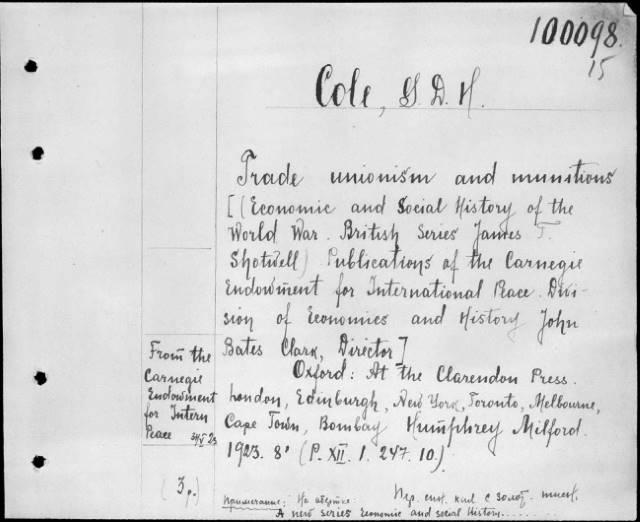 100098.
15
Cole, G. D. H.
Trade unionism and munitions
[(Economic and Social History of the
World War. British Series James T.
Shotwell) Publications of the Carnegie
Endowment for International Peace. Divi-
sion of Economics and History John
Bates Clark, Director]
Oxford: At the Clarendon Press.
London, Edinburgh, New York, Toronto, Melbourne,
Cape Town, Bombay Humphrey Milford.
1923. 8° (P. XII. 1. 247. 10.)
From the
Carnegie
Endowment
for Intern
Peace
(3 р.)
Примечание: На обертке:
Пер. с золот. тисн.
A new series Economic and social History......